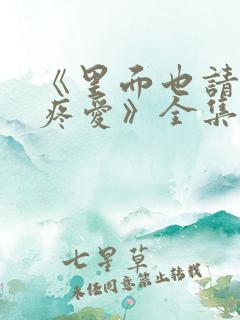 《里而也請
疼愛》全集
七星草
未经同意禁止转载